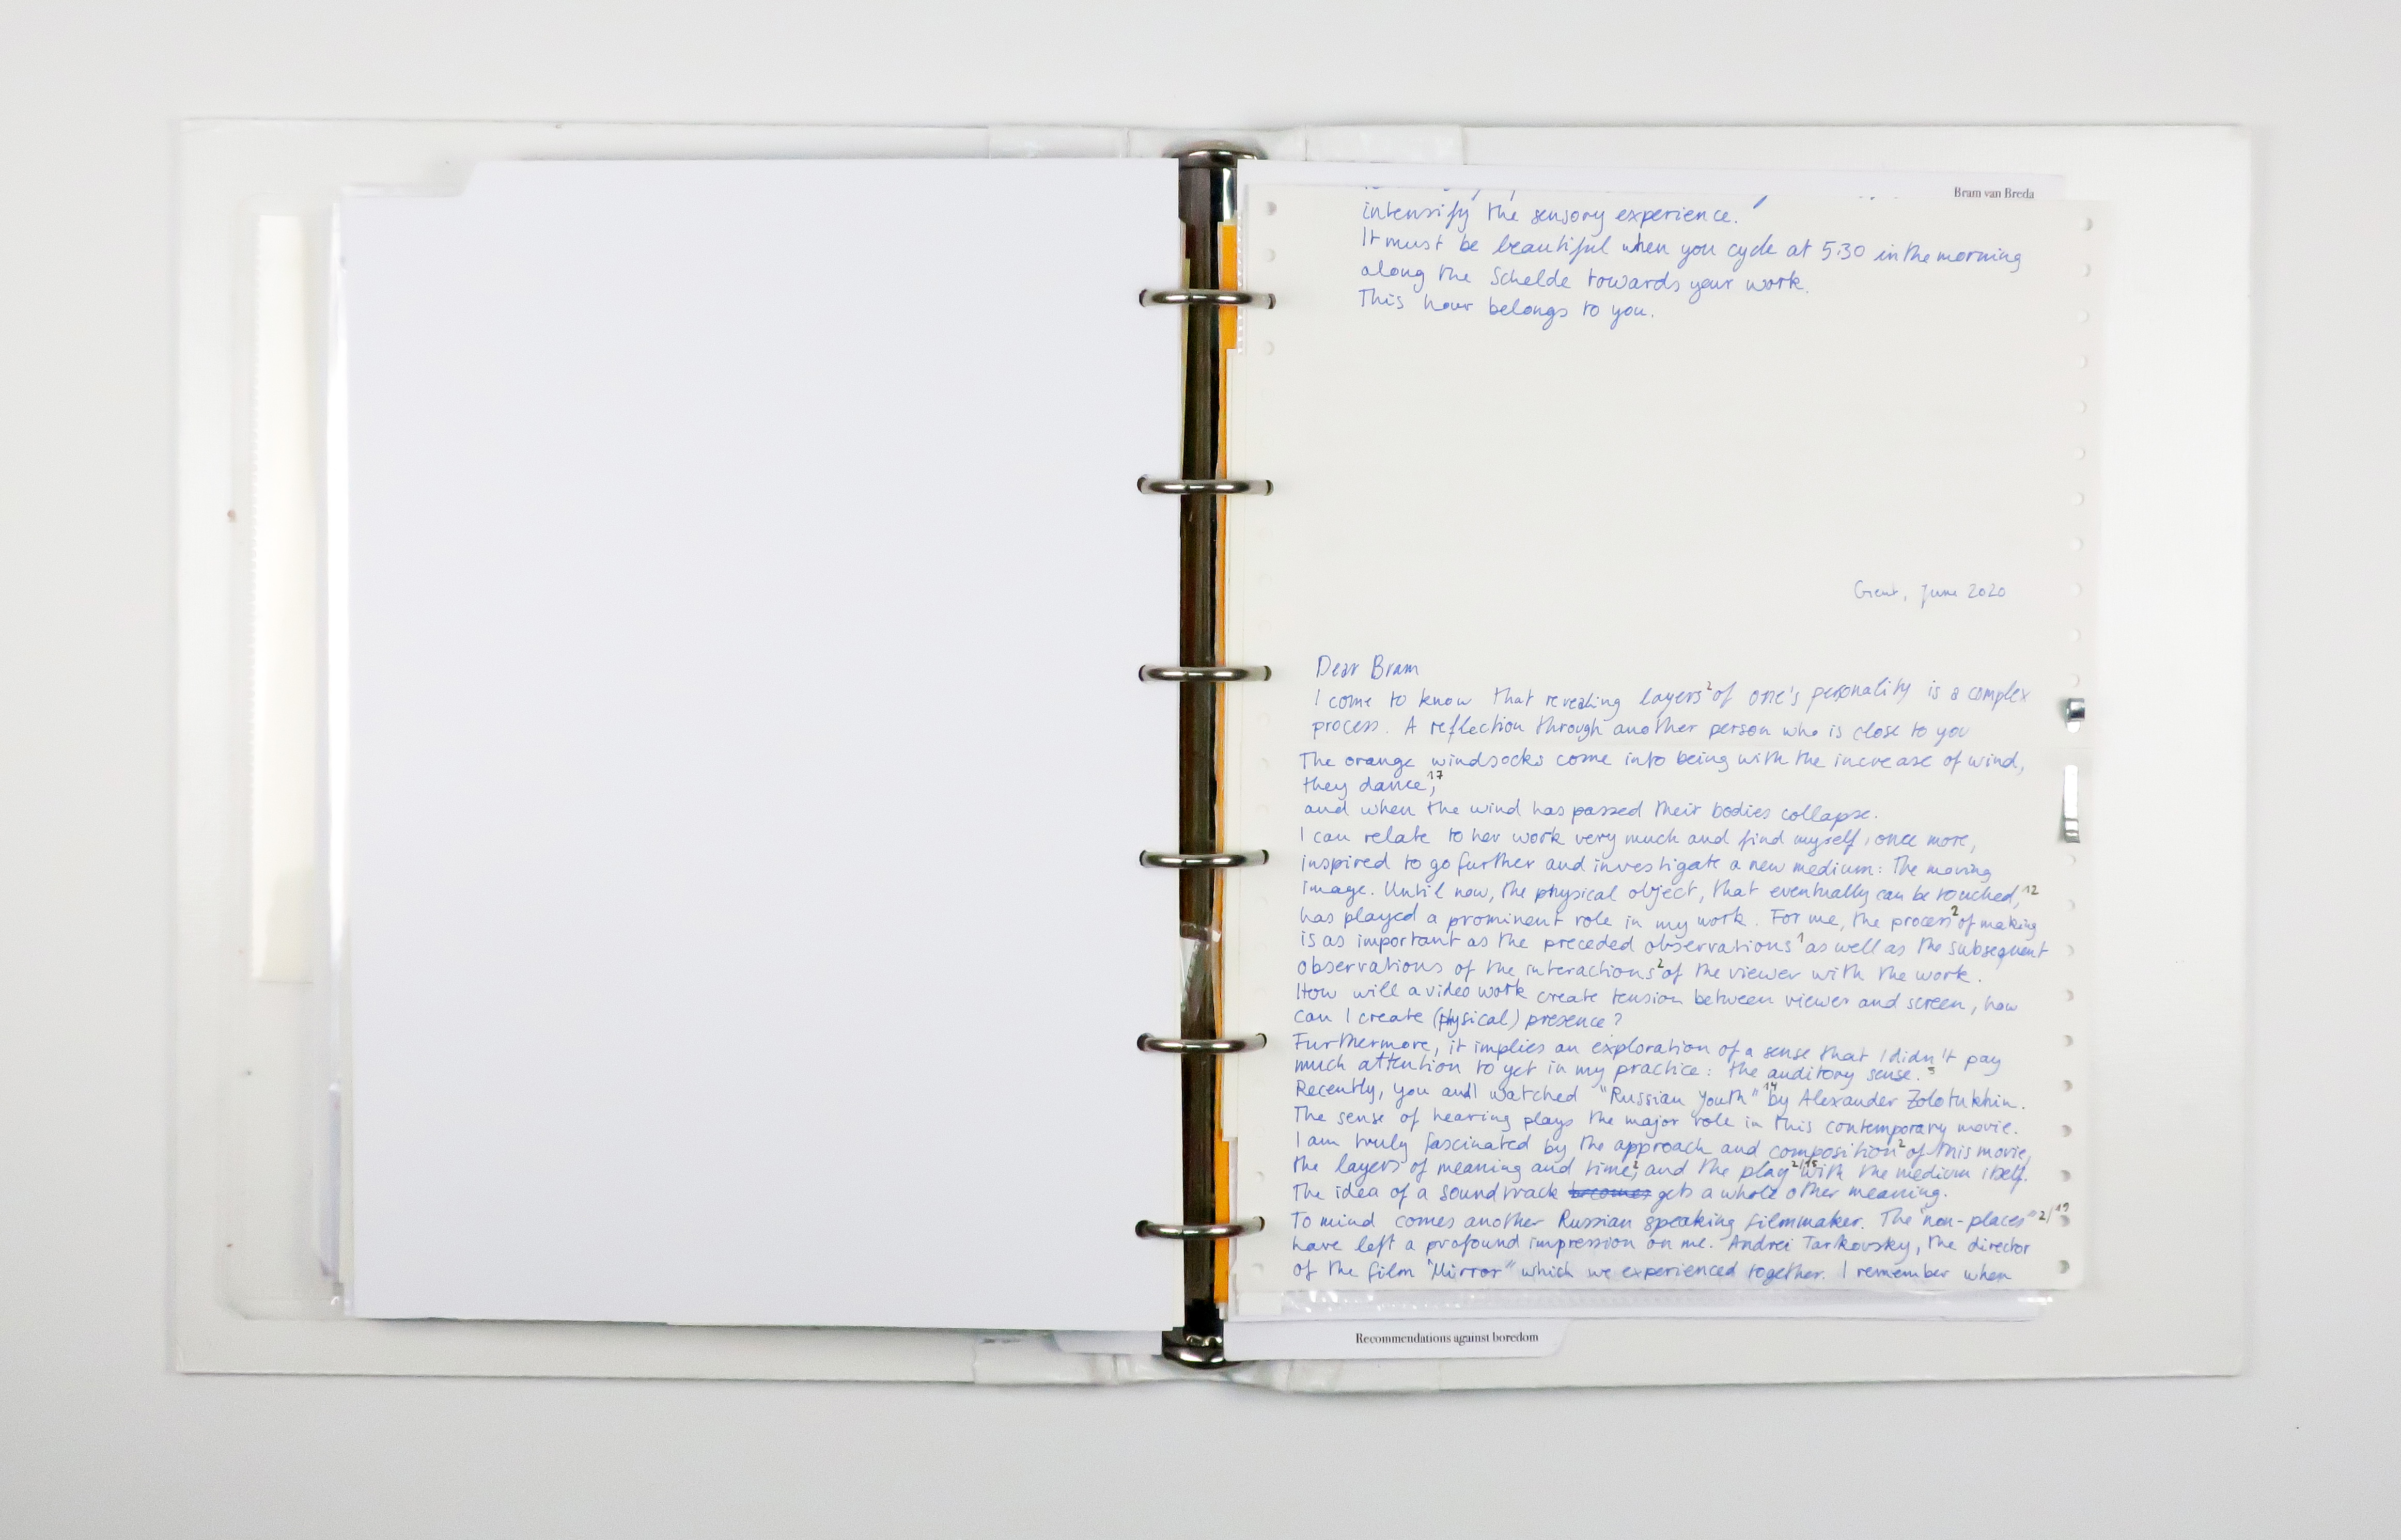 Bram van Breda
intensify the sensory experience.
It must be beautiful when you cycle at 5.30 in the morning
along the Schelde towards your work.
This hour belongs to you.
Gent, June 2020
Dear Bram
I come to know that revealing layers² of one's personality is a complex
process. A reflection through another person who is close to you
The orange windsocks come into being with the increase of wind,
they dance,¹⁷
and when the wind has passed their bodies collapse.
I can relate to her work very much and find myself, once more,
inspired to go further and investigate a new medium: The moving
image. Until now, the physical object, that eventually can be touched,¹²
has played a prominent role in my work. For me, the process² of making
is as important as the preceded observations¹ as well as the subsequent
observations of the interactions² of the viewer with the work.
How will a video work create tension between viewer and screen, how
can I create (physical) presence?
Furthermore, it implies an exploration of a sense that I didn't pay
much attention to yet in my practice: the auditory sense.⁵
Recently, you and I watched "Russian Youth"¹⁴ by Alexander Zolotukhin.
The sense of hearing plays the major role in this contemporary movie.
I am truly fascinated by the approach and composition² of this movie,
the layers of meaning and time,² and the play²/¹⁵ with the medium itself.
The idea of a soundtrack becomes gets a whole other meaning.
To mind comes another Russian speaking filmmaker. The "non-places"²/¹⁹
have left a profound impression on me. Andrei Tarkovsky, the director
of the film "Mirror" which we experienced together. I remember when
Recommendations against boredom